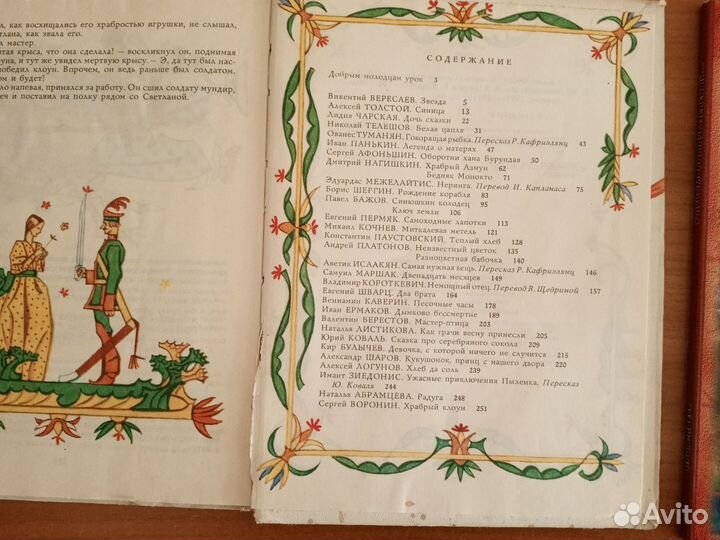 л, как восхищались его храбростью игрушки, не слышал,
тлана, как звала его.
л мастер.
итая крыса, что она сделала! — воскликнул он, поднимая
уна, и тут же увидел мертвую крысу. — Э, да тут был нас-
победил клоун. Впрочем, он ведь раньше был солдатом.
ом и будет!
ло напевая, принялся за работу. Он сшил солдату мундир,
еч и поставил на полку рядом со Светланой.
СОДЕРЖАНИЕ
Добрым молодцам урок 3
Викентий ВЕРЕСАЕВ. Звезда 5
Алексей ТОЛСТОЙ. Синица 13
Лидия ЧАРСКАЯ. Дочь сказки 22
Николай ТЕЛЕШОВ. Белая цапля 31
Ованес ТУМАНЯН. Говорящая рыбка. Пересказ Р. Кафриэлянц 43
Иван ПАНЬКИН. Легенда о матерях 47
Сергей АФОНЬШИН. Оборотни хана Бурундая 50
Дмитрий НАГИШКИН. Храбрый Азмун 62
Бедняк Монокто 71
Эдуардас МЕЖЕЛАЙТИС. Неринга. Перевод И. Капланаса 75
Борис ШЕРГИН. Рождение корабля 83
Павел БАЖОВ. Синюшкин колодец 95
Ключ земли 106
Евгений ПЕРМЯК. Самоходные лапотки 113
Михаил КОЧНЕВ. Миткалевая метель 121
Константин ПАУСТОВСКИЙ. Теплый хлеб 128
Андрей ПЛАТОНОВ. Неизвестный цветок 135
Разноцветная бабочка 140
Аветик ИСААКЯН. Самая нужная вещь. Пересказ Р. Кафриэлянц 146
Самуил МАРШАК. Двенадцать месяцев 149
Владимир КОРОТКЕВИЧ. Немощный отец. Перевод В. Щедриной 157
Евгений ШВАРЦ. Два брата 164
Вениамин КАВЕРИН. Песочные часы 178
Иван ЕРМАКОВ. Дынково бессмертие 189
Валентин БЕРЕСТОВ. Мастер-птица 203
Наталья ЛИСТИКОВА. Как грачи весну принесли 205
Юрий КОВАЛЬ. Сказка про серебряного сокола 209
Кир БУЛЫЧЕВ. Девочка, с которой ничего не случится 215
Александр ШАРОВ. Кукушонок, принц с нашего двора 220
Алексей ЛОГУНОВ. Хлеб да соль 239
Имант ЗИЕДОНИС. Ужасные приключения Пыленка. Пересказ
Ю. Коваля 244
Наталья АБРАМЦЕВА. Радуга 248
Сергей ВОРОНИН. Храбрый клоун 251
Avito